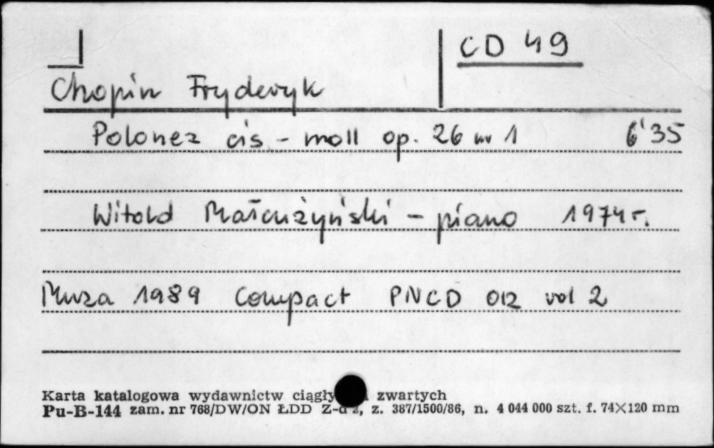 CD 49
Chopin Fryderyk
Polonez cis-moll op. 26 nr 1 6'35
Witold Małcużyński - piano 1974 r.
Muza 1989 Compact PNCD 012 vol 2
Karta katalogowa wydawnictw ciągły zwartych
Pu-B-144 zam. nr 768/DW/ON ŁDD z, z. 387/1500/86, n. 4 044 000 szt. f. 74×120 mm